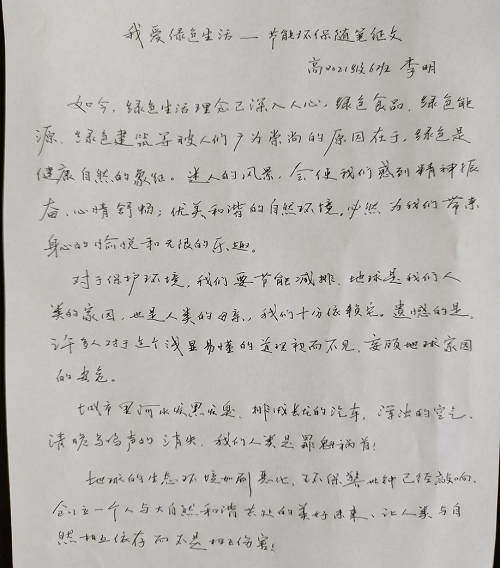 我爱绿色生活——节能环保随笔征文
高2021级6班 李明
如今，绿色生活理念已深入人心，绿色食品、绿色能
源、绿色建筑等被人们广为崇尚的原因在于，绿色是
健康自然的象征。迷人的风景，会使我们感到精神振
奋、心情舒畅；优美和谐的自然环境，必然为我们带来
身心的愉悦和无限的乐趣。
对于保护环境，我们要节能减排，地球是我们人
类的家园，也是人类的母亲，我们十分依赖它。遗憾的是，
许多人对于这个浅显易懂的道理视而不见，妄顾地球家园
的安危。
城市里河水发黑发臭、排成长龙的汽车、浑浊的空气、
清晓鸟鸣声的消失，我们人类是罪魁祸首！
地球的生态环境如刻恶化，环保警世钟已经敲响，
创立一个人与大自然和谐共处的美好未来，让人类与自
然相互依存而不是相互伤害！